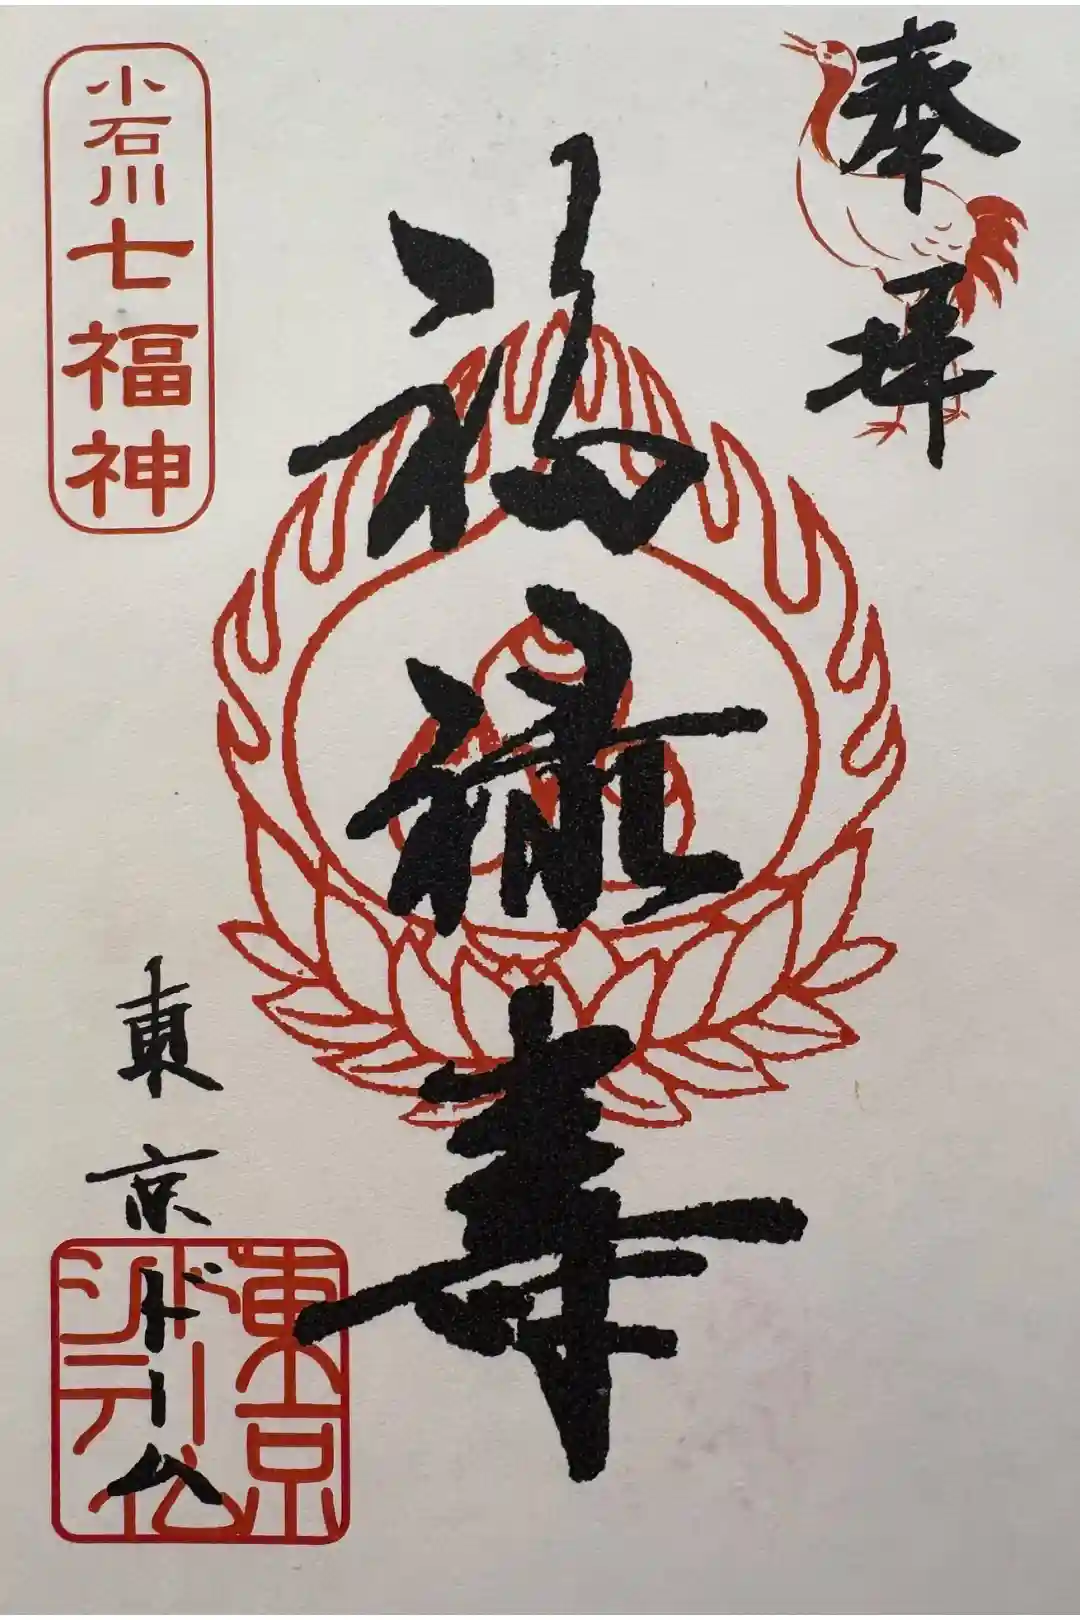 奉拝
福禄寿
小石川七福神
東京ドーム
東京
ドーム
シテイ